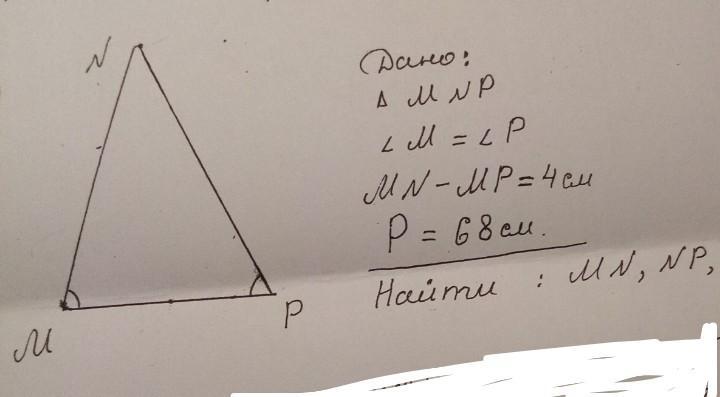 N
M
P
Дано:
Δ M N P
∠ M = ∠ P
MN - MP = 4 см
P = 68 см.
Найти : MN, NP,